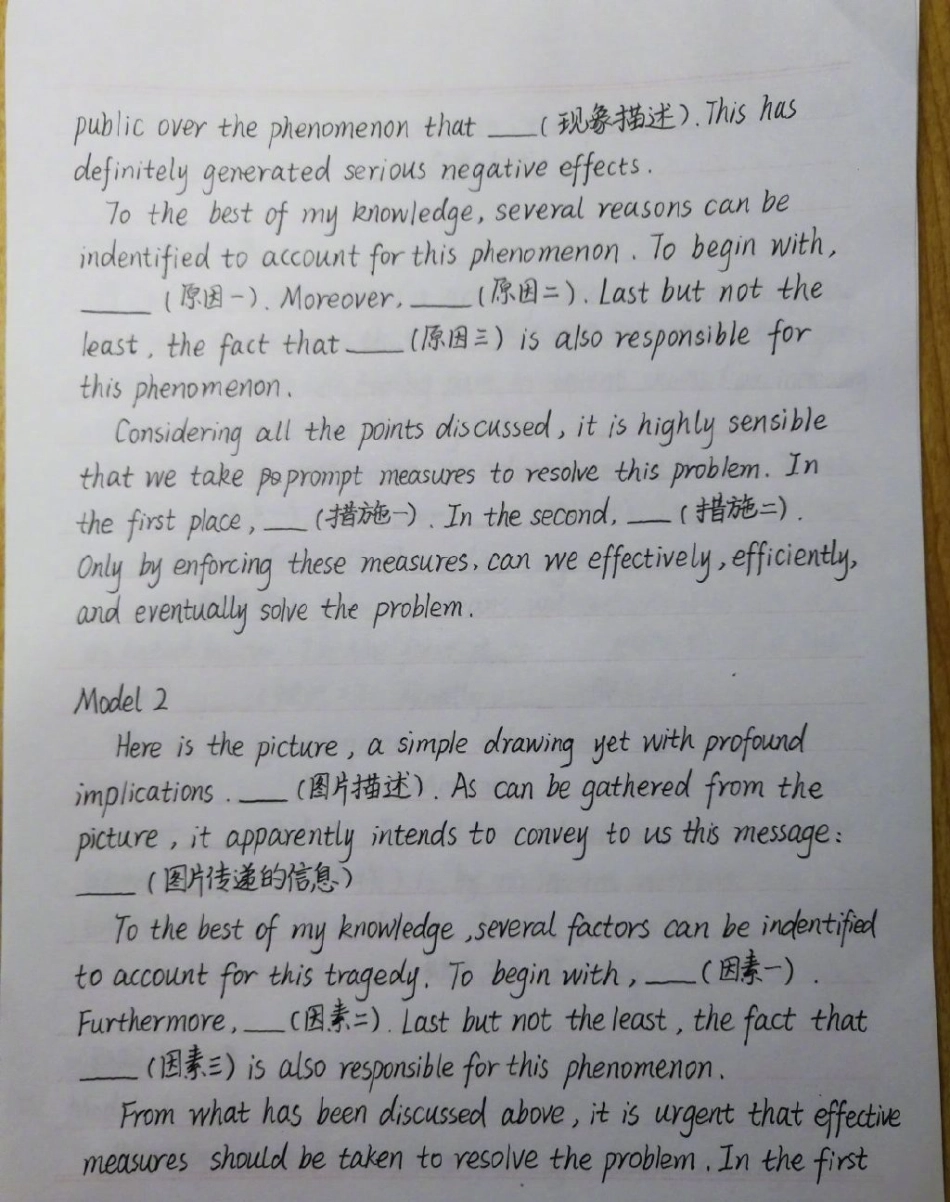 public over the phenomenon that ___(现象描述). This has
definitely generated serious negative effects.
To the best of my knowledge, several reasons can be
indentified to account for this phenomenon. To begin with,
____ (原因一). Moreover, ____ (原因二). Last but not the
least, the fact that ____ (原因三) is also responsible for
this phenomenon.
Considering all the points discussed, it is highly sensible
that we take prompt measures to resolve this problem. In
the first place, ___ (措施一). In the second, ___ (措施二).
Only by enforcing these measures, can we effectively, efficiently,
and eventually solve the problem.
Model 2
Here is the picture, a simple drawing yet with profound
implications. ___ (图片描述). As can be gathered from the
picture, it apparently intends to convey to us this message:
____ (图片传递的信息)
To the best of my knowledge, several factors can be indentified
to account for this tragedy. To begin with, ___ (因素一).
Furthermore, ___ (因素二). Last but not the least, the fact that
____ (因素三) is also responsible for this phenomenon.
From what has been discussed above, it is urgent that effective
measures should be taken to resolve the problem. In the first